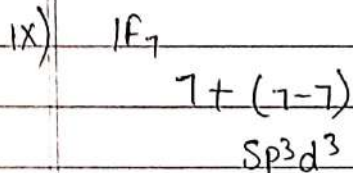 ix) IF₇
7 + (7-7)
Sp³d³